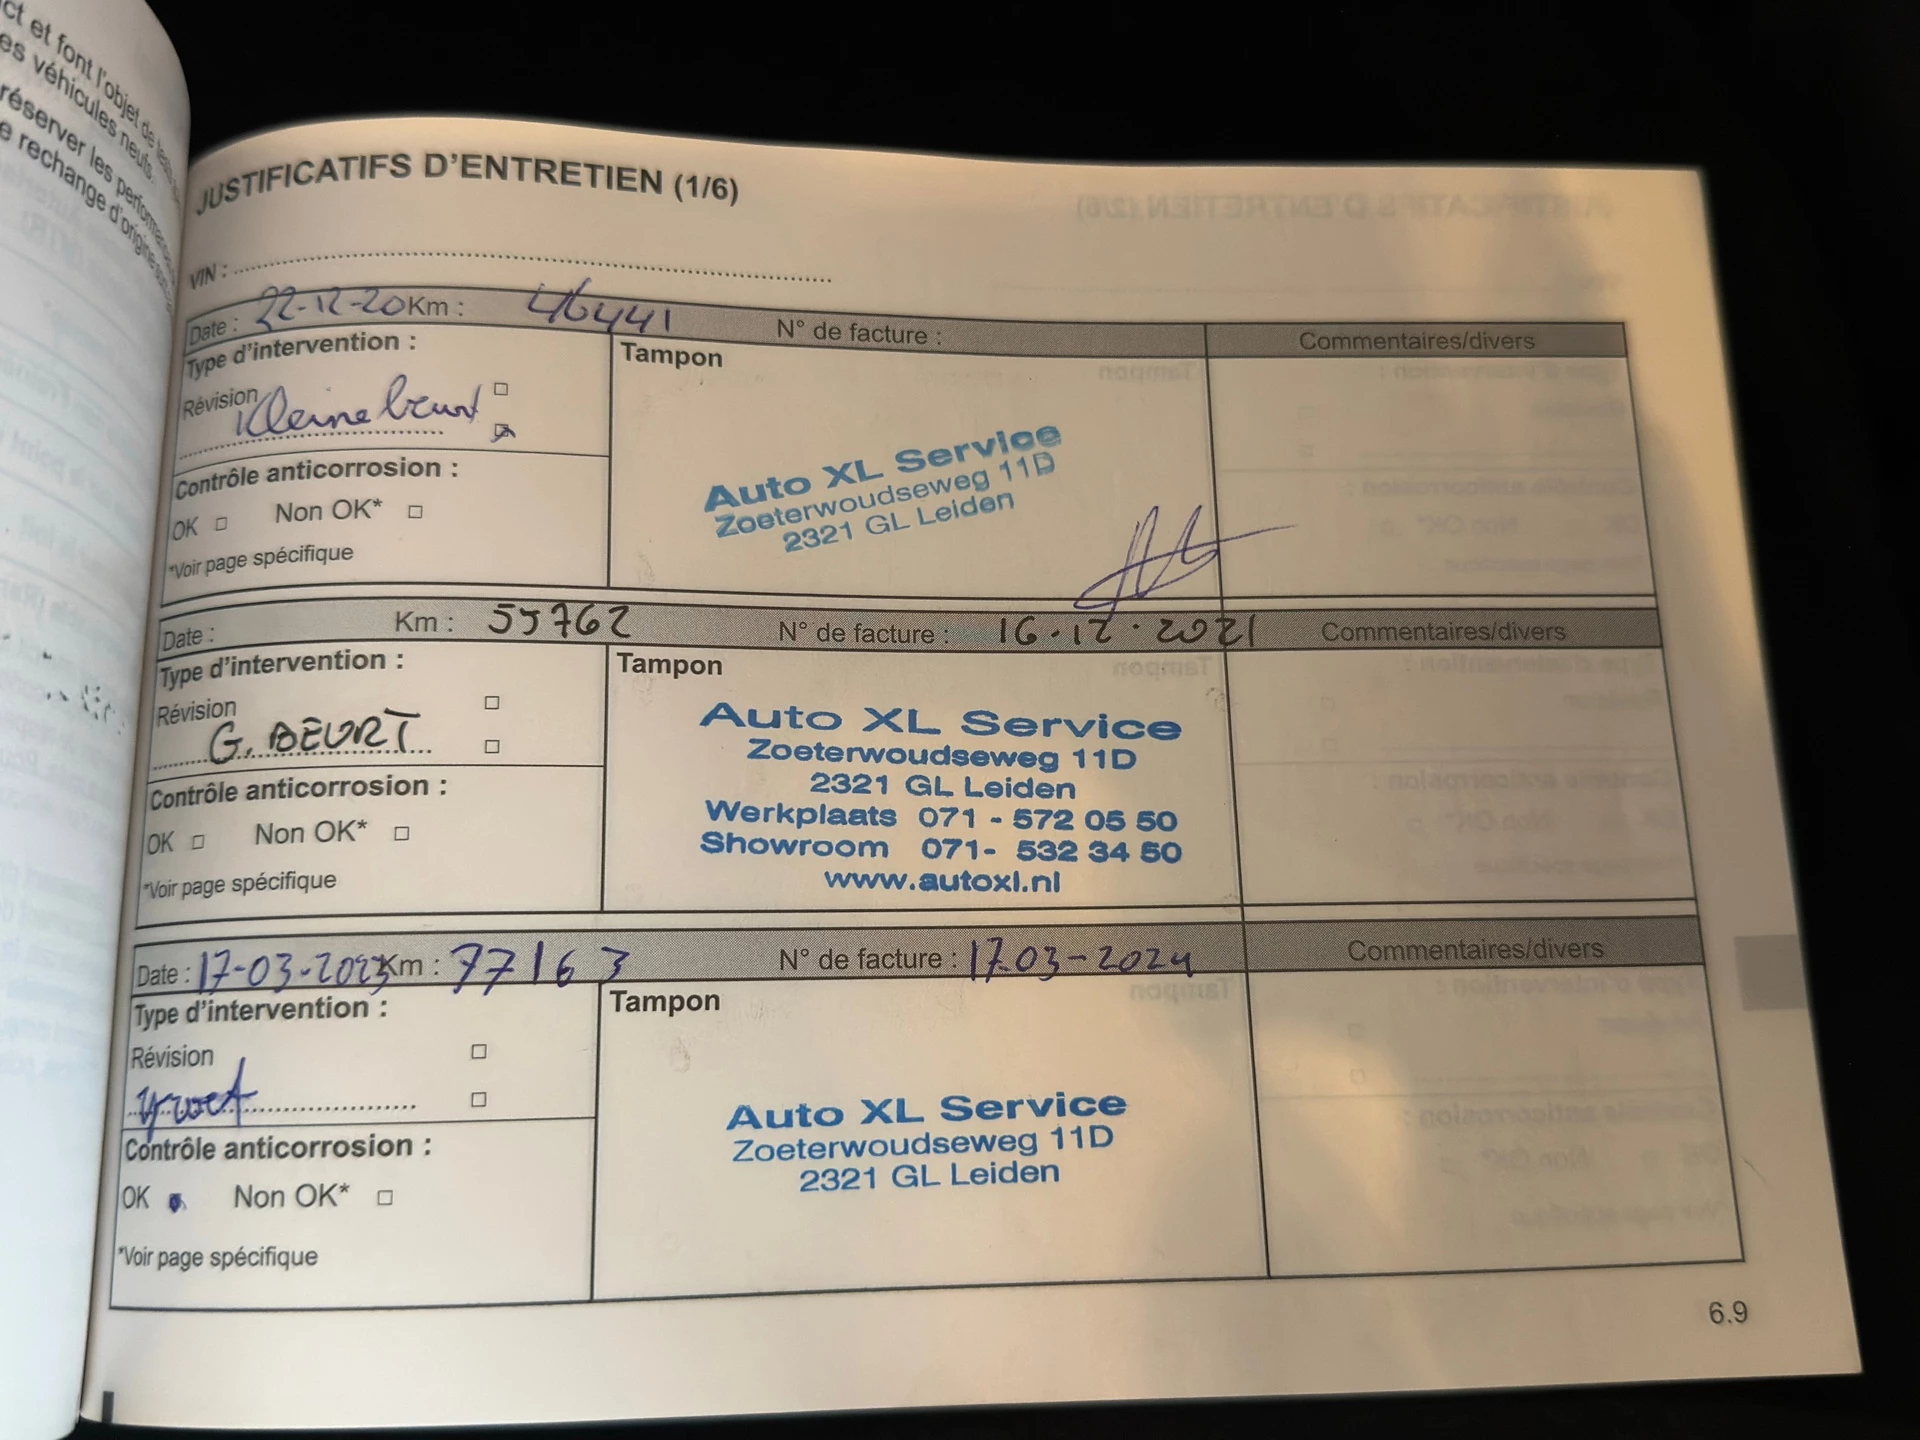 ct et font l'objet de tests
es véhicules neufs.
réserver les performan
e rechange d'origine
JUSTIFICATIFS D'ENTRETIEN (1/6)
VIN :
Date : 22-12-20 Km : 46441 N° de facture : Commentaires/divers
Type d'intervention : Tampon
Révision
Kleine beurt
Contrôle anticorrosion :
OK Non OK*
*Voir page spécifique
Auto XL Service
Zoeterwoudseweg 11D
2321 GL Leiden
Date : Km : 55762 N° de facture : 16-12-2021 Commentaires/divers
Type d'intervention : Tampon
Révision
G. BEURT
Contrôle anticorrosion :
OK Non OK*
*Voir page spécifique
Auto XL Service
Zoeterwoudseweg 11D
2321 GL Leiden
Werkplaats 071 - 572 05 50
Showroom 071- 532 34 50
www.autoxl.nl
Date : 17-03-2023 Km : 77163 N° de facture : 17.03-2024 Commentaires/divers
Type d'intervention : Tampon
Révision
Contrôle anticorrosion :
OK Non OK*
*Voir page spécifique
Auto XL Service
Zoeterwoudseweg 11D
2321 GL Leiden
6.9